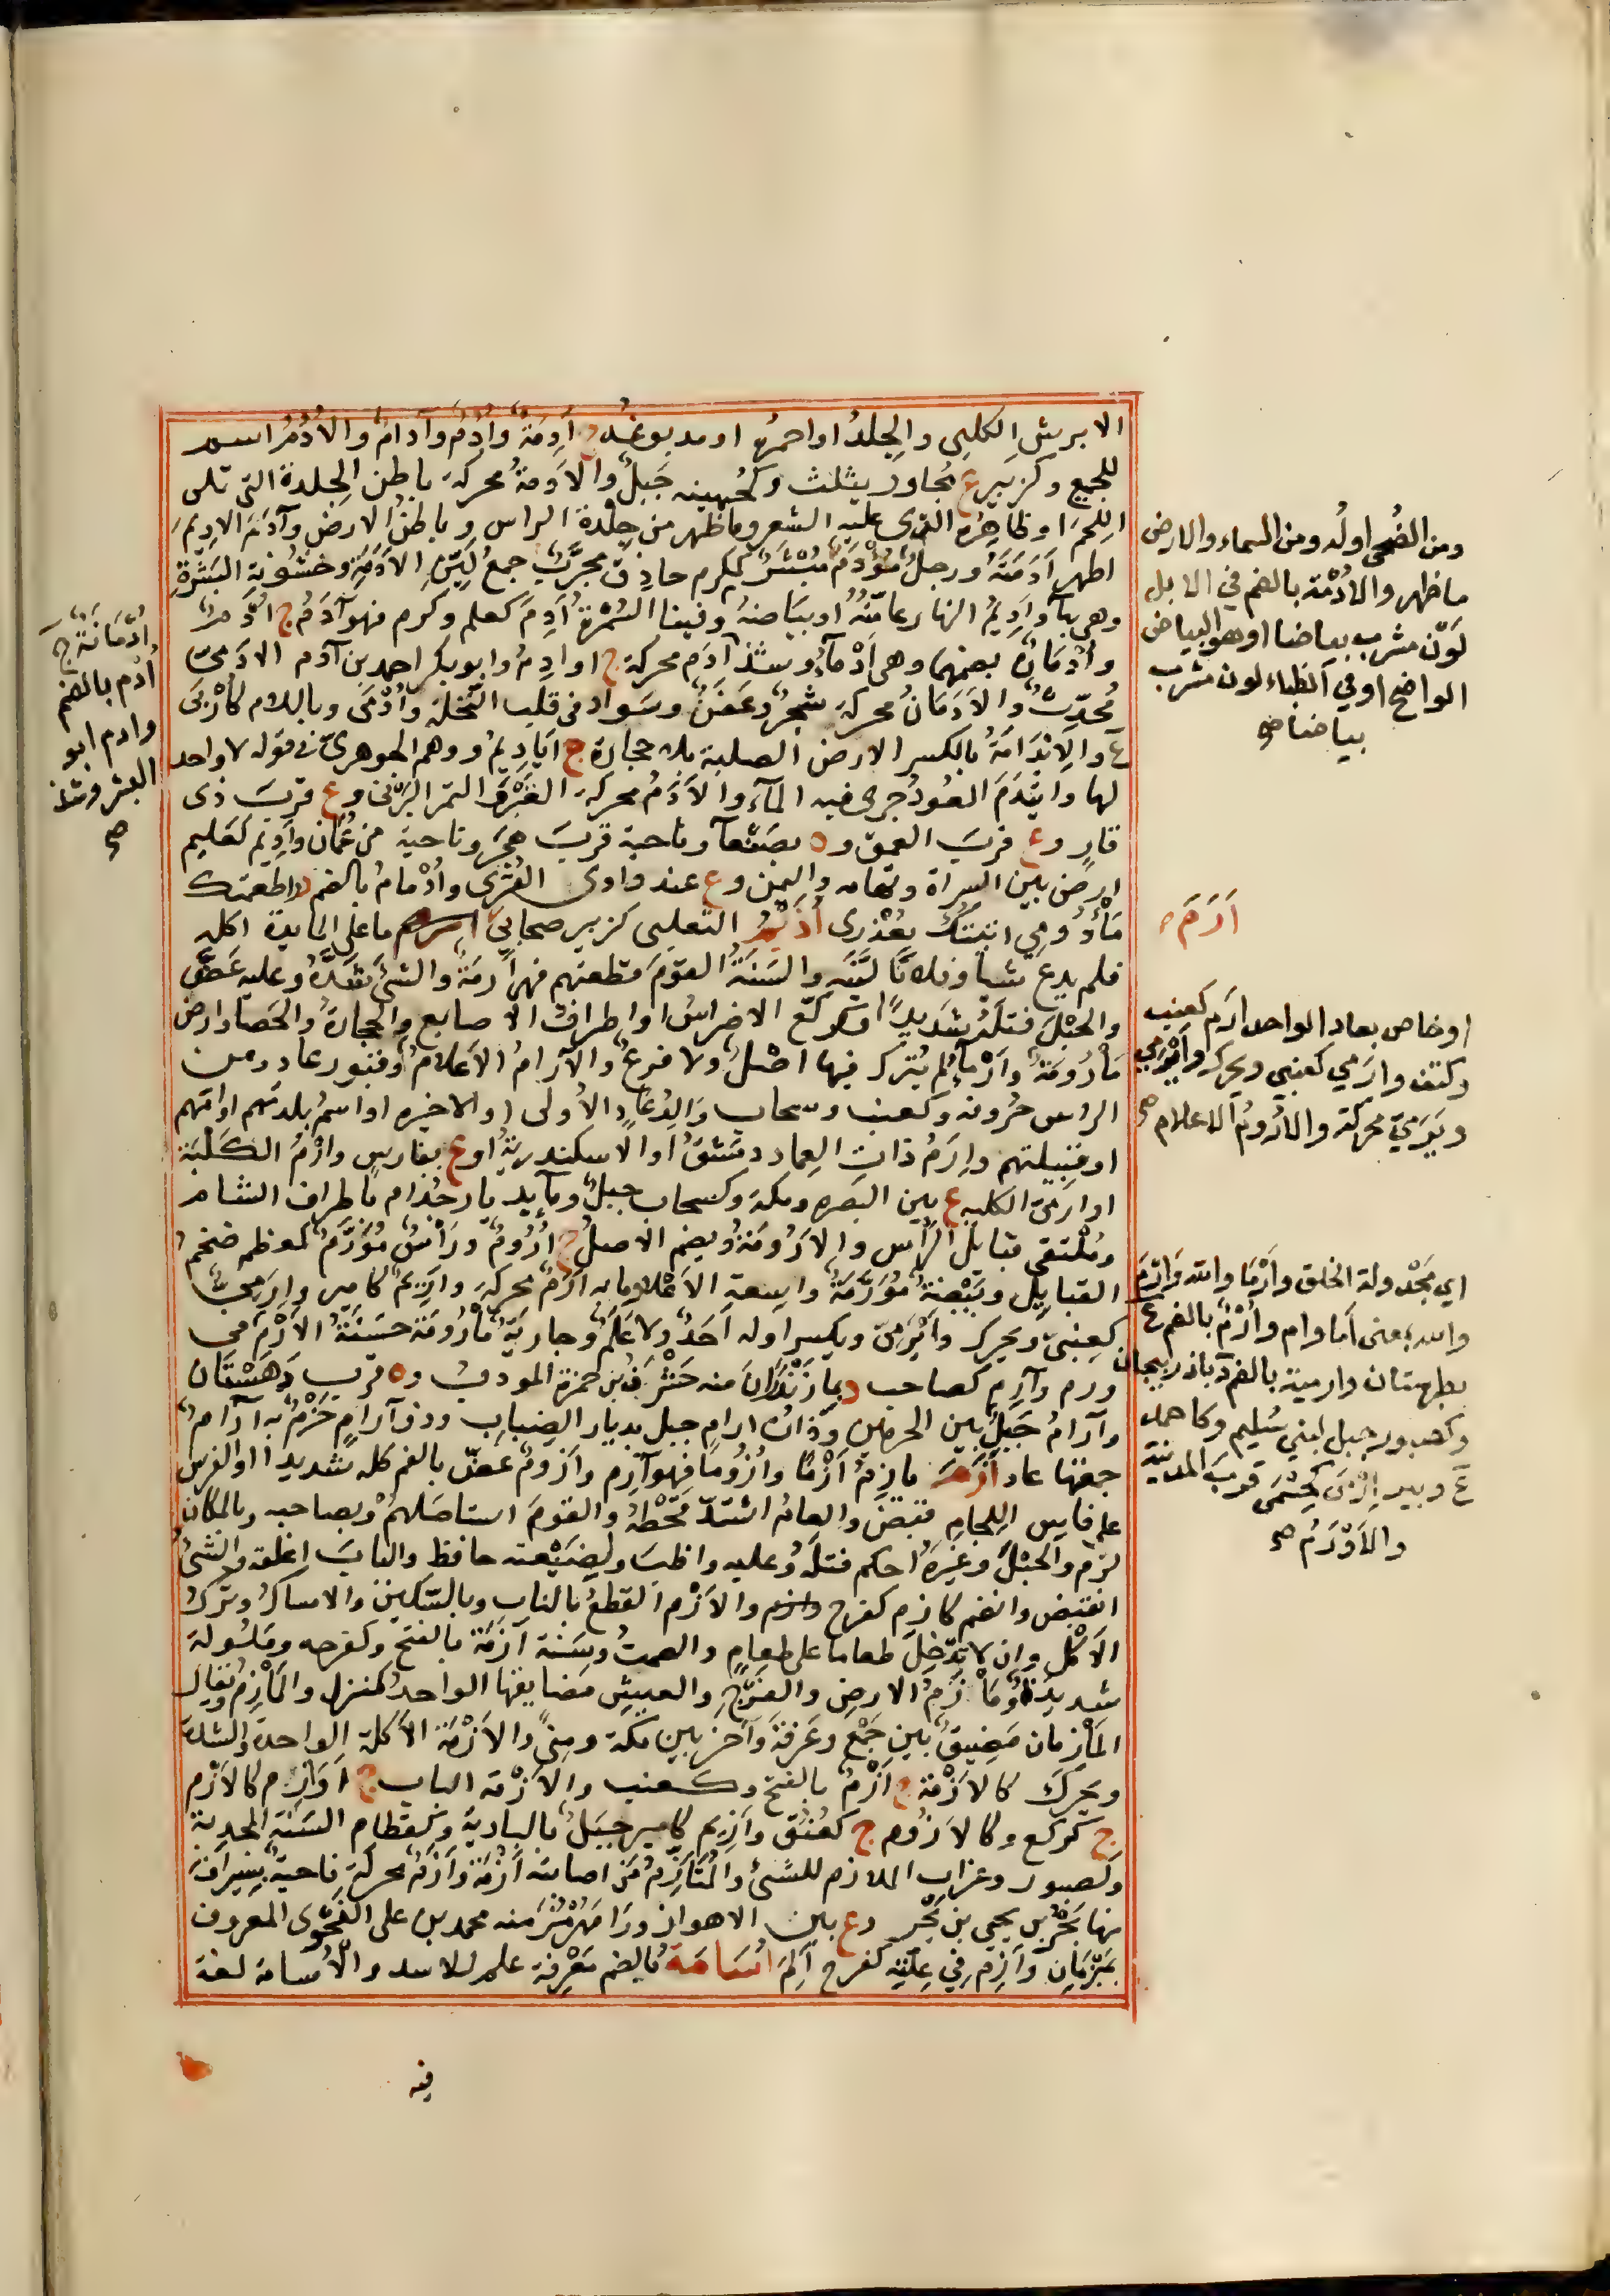 الابرش الكلبي والجلد او احمره او مدبوغه ج آدمة وأدم وآدام والأدم اسم
للجمع وكزبير ع يجاور يثلث وكجهينه جبل والأدمة محركة باطن الجلدة التي تلي
اللحم او ظاهره الذي عليه الشعر وما ظهر من جلدة الراس وباطن الارض وآدم الاديم
اظهر أدمته ورجل مؤدم مبشر كمكرم حاذق مجرب جمع لين الأدمة وخشونة البشرة
وهي بهآ وأديم النهار عامته او بياضه وفينا السمرة أدم كعلم وكرم فهو آدم ج أدم
وأدمان بضمهما وهي أدمآ وشذ آدم محركة ج اوادم وابو بكر احمد بن آدم الادمي
محدث والأدمان محركة شجر وعفن وسواد في قلب النخلة وأدمى وباللام كأربى
ع والايدامة بالكسر الارض الصلبة بلا حجارة ج اياديم ووهم الجوهري في قوله لا واحد
لها وايتدم العود جرى فيه المآء والأدم محركة القبر والتمر البرني وع قرب ذي
قار وع قرب العمق وه بصنعآ وناحية قرب هجر وناحية من عمان وأديم كعليم
ارض بين السراة وتهامه واليمن وع عند وادي القرى وأدمام بالضم د اطعمتك
مأدومي اتيتك بعذري أذيم التعلبي كزبير صحابي ارم ما على المايدة اكله
فلم يدع شيا وفلانا لينه والسنة القوم قطعتهم فهي آرمة والشئ شده وعليه عض
والحبل فتله شديدا وكركع الاضراس او اطراف الاصابع والحجارة والحصا وارض
مأرومة وأرمآ لم يترك فيها اصل ولا فرع والآرام الاعلام او قبور عاد ومن
الراس حروفه وكعنب وسحاب والد عاد الأولى او الاخيره او اسم بلدتهم او امهم
او قبيلتهم وارم ذات العماد دمشق او الاسكندرية او ع بفارس وأرم الكلبة
او ارمى الكلبه ع بين البصره ومكة وكسحاب جبل ومآ بديار جذام باطراف الشام
وملتقى قبايل الراس والارومة ويضم الاصل ج أروم وراس مؤرم كمعظم ضخم
القبايل وبيضة مؤرمة واسعة الاعلى وما به أرم محركة وأريم كامير وإرمي
كعنبي ويحرك وأيرمي ويكسر اوله احد ولا علم وجارية مأرومة حسنة الأرم
ورم وآرم كصاحب د بمازندران منه خسرو بن حمزة المودب وه قرب دهستان
وآرام جبل بين الحرمين وذات ارام جبل بديار الضباب وذو آرام حزم به آرام
جمعتها عاد أزم يأزم أزما وأزوما فهو آزم وأزوم عض بالفم كله شديدا او الفرس
على فاس اللجام قبض والعام اشتد قحطه والقوم استاصلهم وبصاحبه وبالمكان
لزم والحبل وغيره احكم فتله وعليه واظب ولضيعته حافظ والباب اغلقه والشئ
انقبض وانضم كازم كفرح والأزم القطع بالناب وبالسكين والامساك وترك
الأكل وان لا تدخل طعاما على طعام والصمت وسنة أزمة بالفتح وكفرحه وملولة
شديدة ومأزم الارض والفرج والعيش مضايقها الواحد كمنزل والمأزم ويقال
المأزمان مضيق بين جمع وعرفة وآخر بين مكة ومنى والأزمة الأكلة الواحدة والشدة
ويحرك كالآزمة ج أزم بالفتح وكعنب والآزمة الناب ج أوازم كالآزم
ج كركع وكالأزوم ج كعنق وأزيم كامير جبل بالبادية وكقطام السنة المجدبة
وكصبور وغراب الملازم للشئ والمتازم من اصابته أزمة وأزم محركة ناحية بسيراف
منها بحر بن يحيى بن بحر وع بين الاهواز ورامهرمز منه محمد بن علي النحوي المعروف
بمبرمان وأزم في علته كفرح ألم أسامة بالضم معرفة علم للاسد والأسامة لغة
فيه
ومن الضحى اوله ومن السماء والارض
ما ظهر والأدمة بالضم في الابل
لون مشرب بياضا او هو البياض
الواضح او في الظباء لون مشرب
بياضا صح
أرم
او خاص بعاد الواحد ارم كعنب
وكتف وارمي كعنبي ويحرك وأيرمي
ويرمي محركة والأروم الاعلام صح
اي مجدولة الخلق وأرما والله وأرم
والله بمعنى أما وام وأرم بالضم ع
بطبرستان وارمية بالضم د باذربيجان
وكصبور جبل لبني سليم وكاحمد
ع وبير ارمى كحسمى قرب المدينة
والأورم صح
أدمانة ج
أدم بالضم
وادم ابو
البشر وشذ
صح